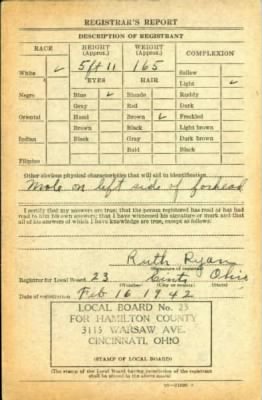 REGISTRAR'S REPORT
DESCRIPTION OF REGISTRANT
RACE HEIGHT (Approx.) WEIGHT (Approx.) COMPLEXION
5ft 11 165
White ✓ Sallow
EYES HAIR Light ✓
Negro Blue ✓ Blonde Ruddy
Gray Red Dark
Oriental Hazel Brown ✓ Freckled
Brown Black Light brown
Indian Black Gray Dark brown
Bald Black
Filipino
Other obvious physical characteristics that will aid in identification
Mole on left side of forhead
I certify that my answers are true; that the person registered has read or has had
read to him his own answers; that I have witnessed his signature or mark and that
all of his answers of which I have knowledge are true, except as follows:
Ruth Ryan
(Signature of registrar)
Registrar for Local Board 23 Cinti Ohio
(Number) (City or county) (State)
Date of registration Feb 16 1942
LOCAL BOARD No. 23
FOR HAMILTON COUNTY
3115 WARSAW AVE.
CINCINNATI, OHIO
(STAMP OF LOCAL BOARD)
(The stamp of the Local Board having jurisdiction of the registrant
shall be placed in the above space)